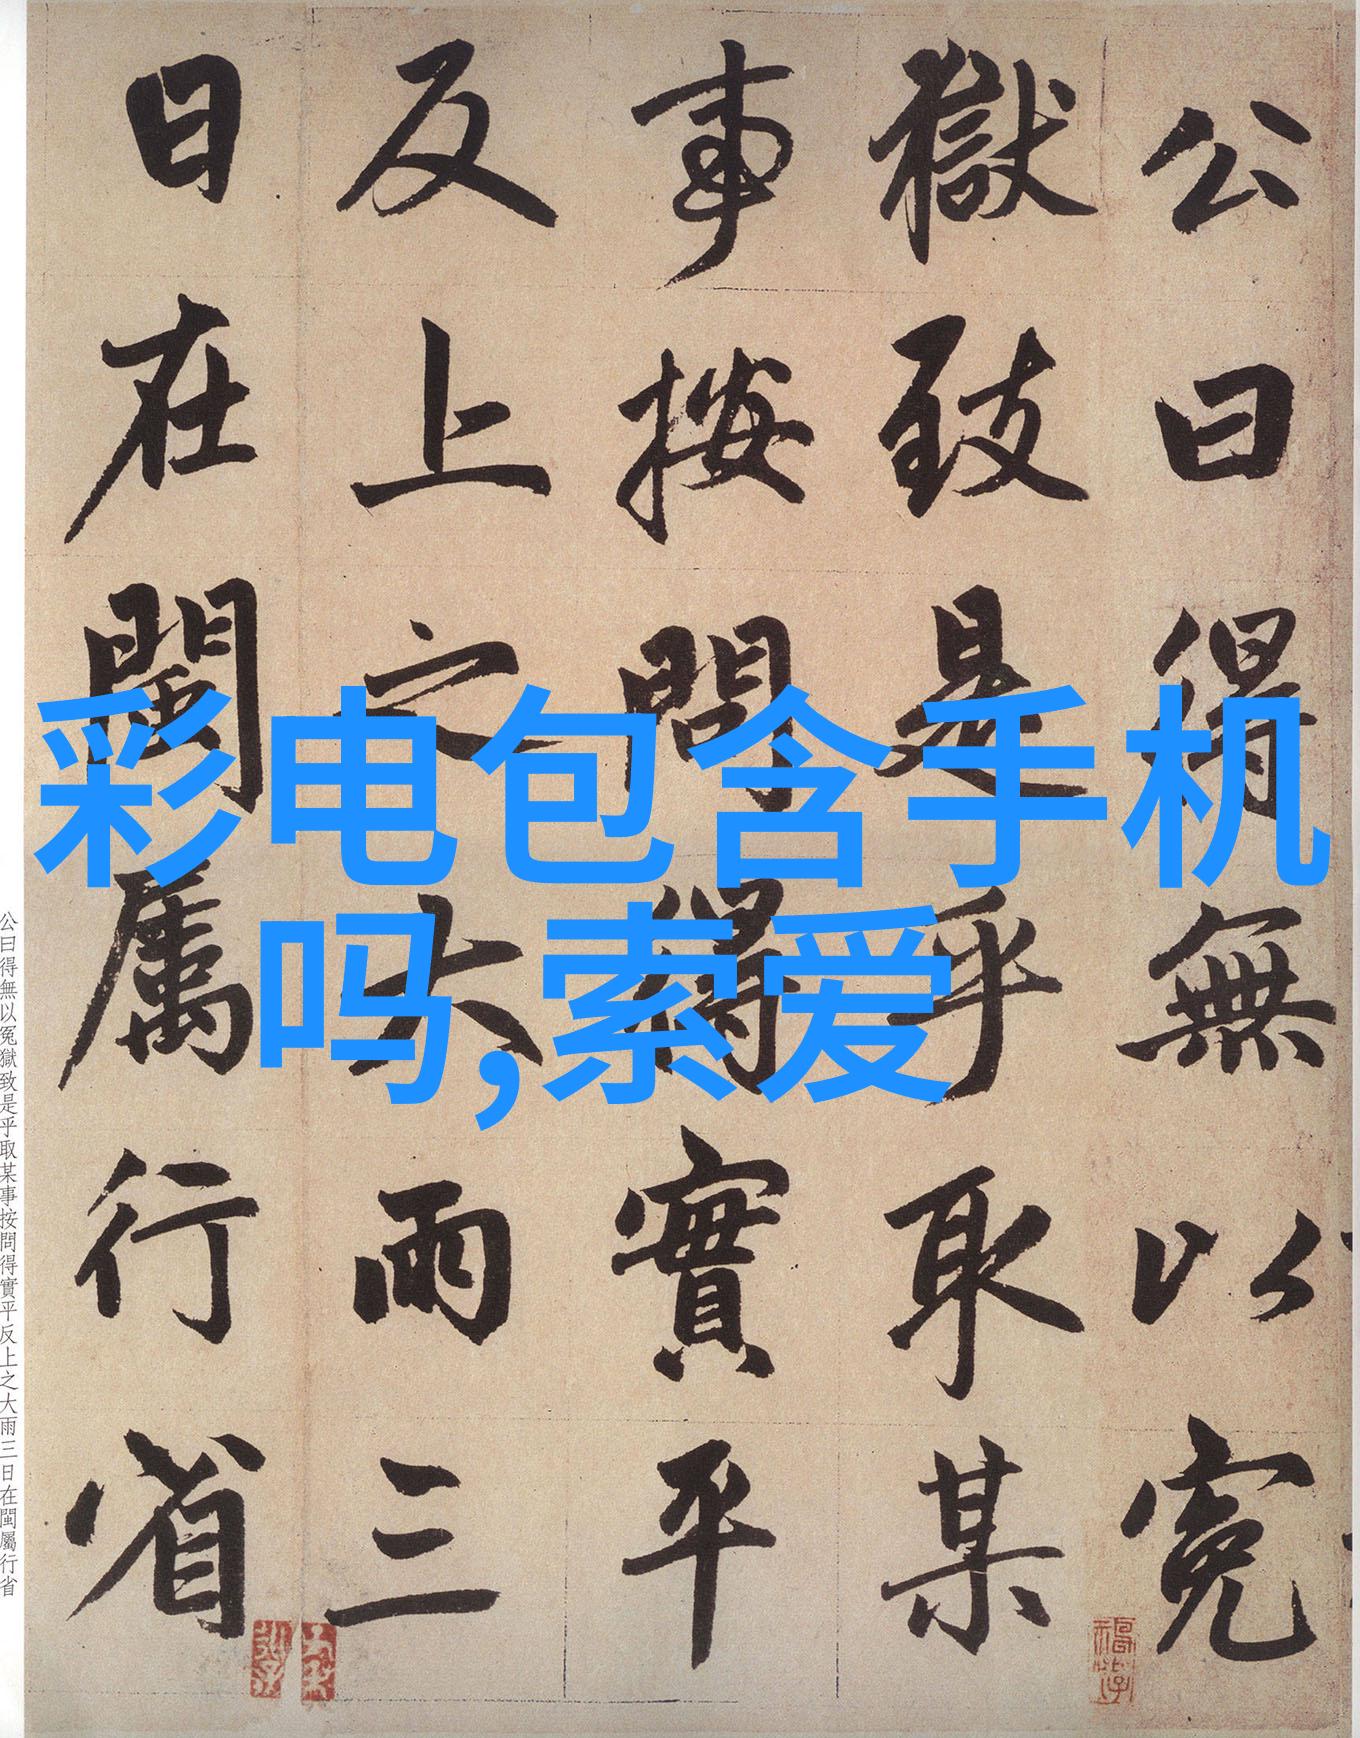 公曰得無以冤
獄致是乎取某
事按問得實平
反上之大雨三
日在閩屬行省
彩电包含手机
吗,索爱
公曰得無以冤獄致是乎取某事按問得實平反上之大雨三日在閩屬行省